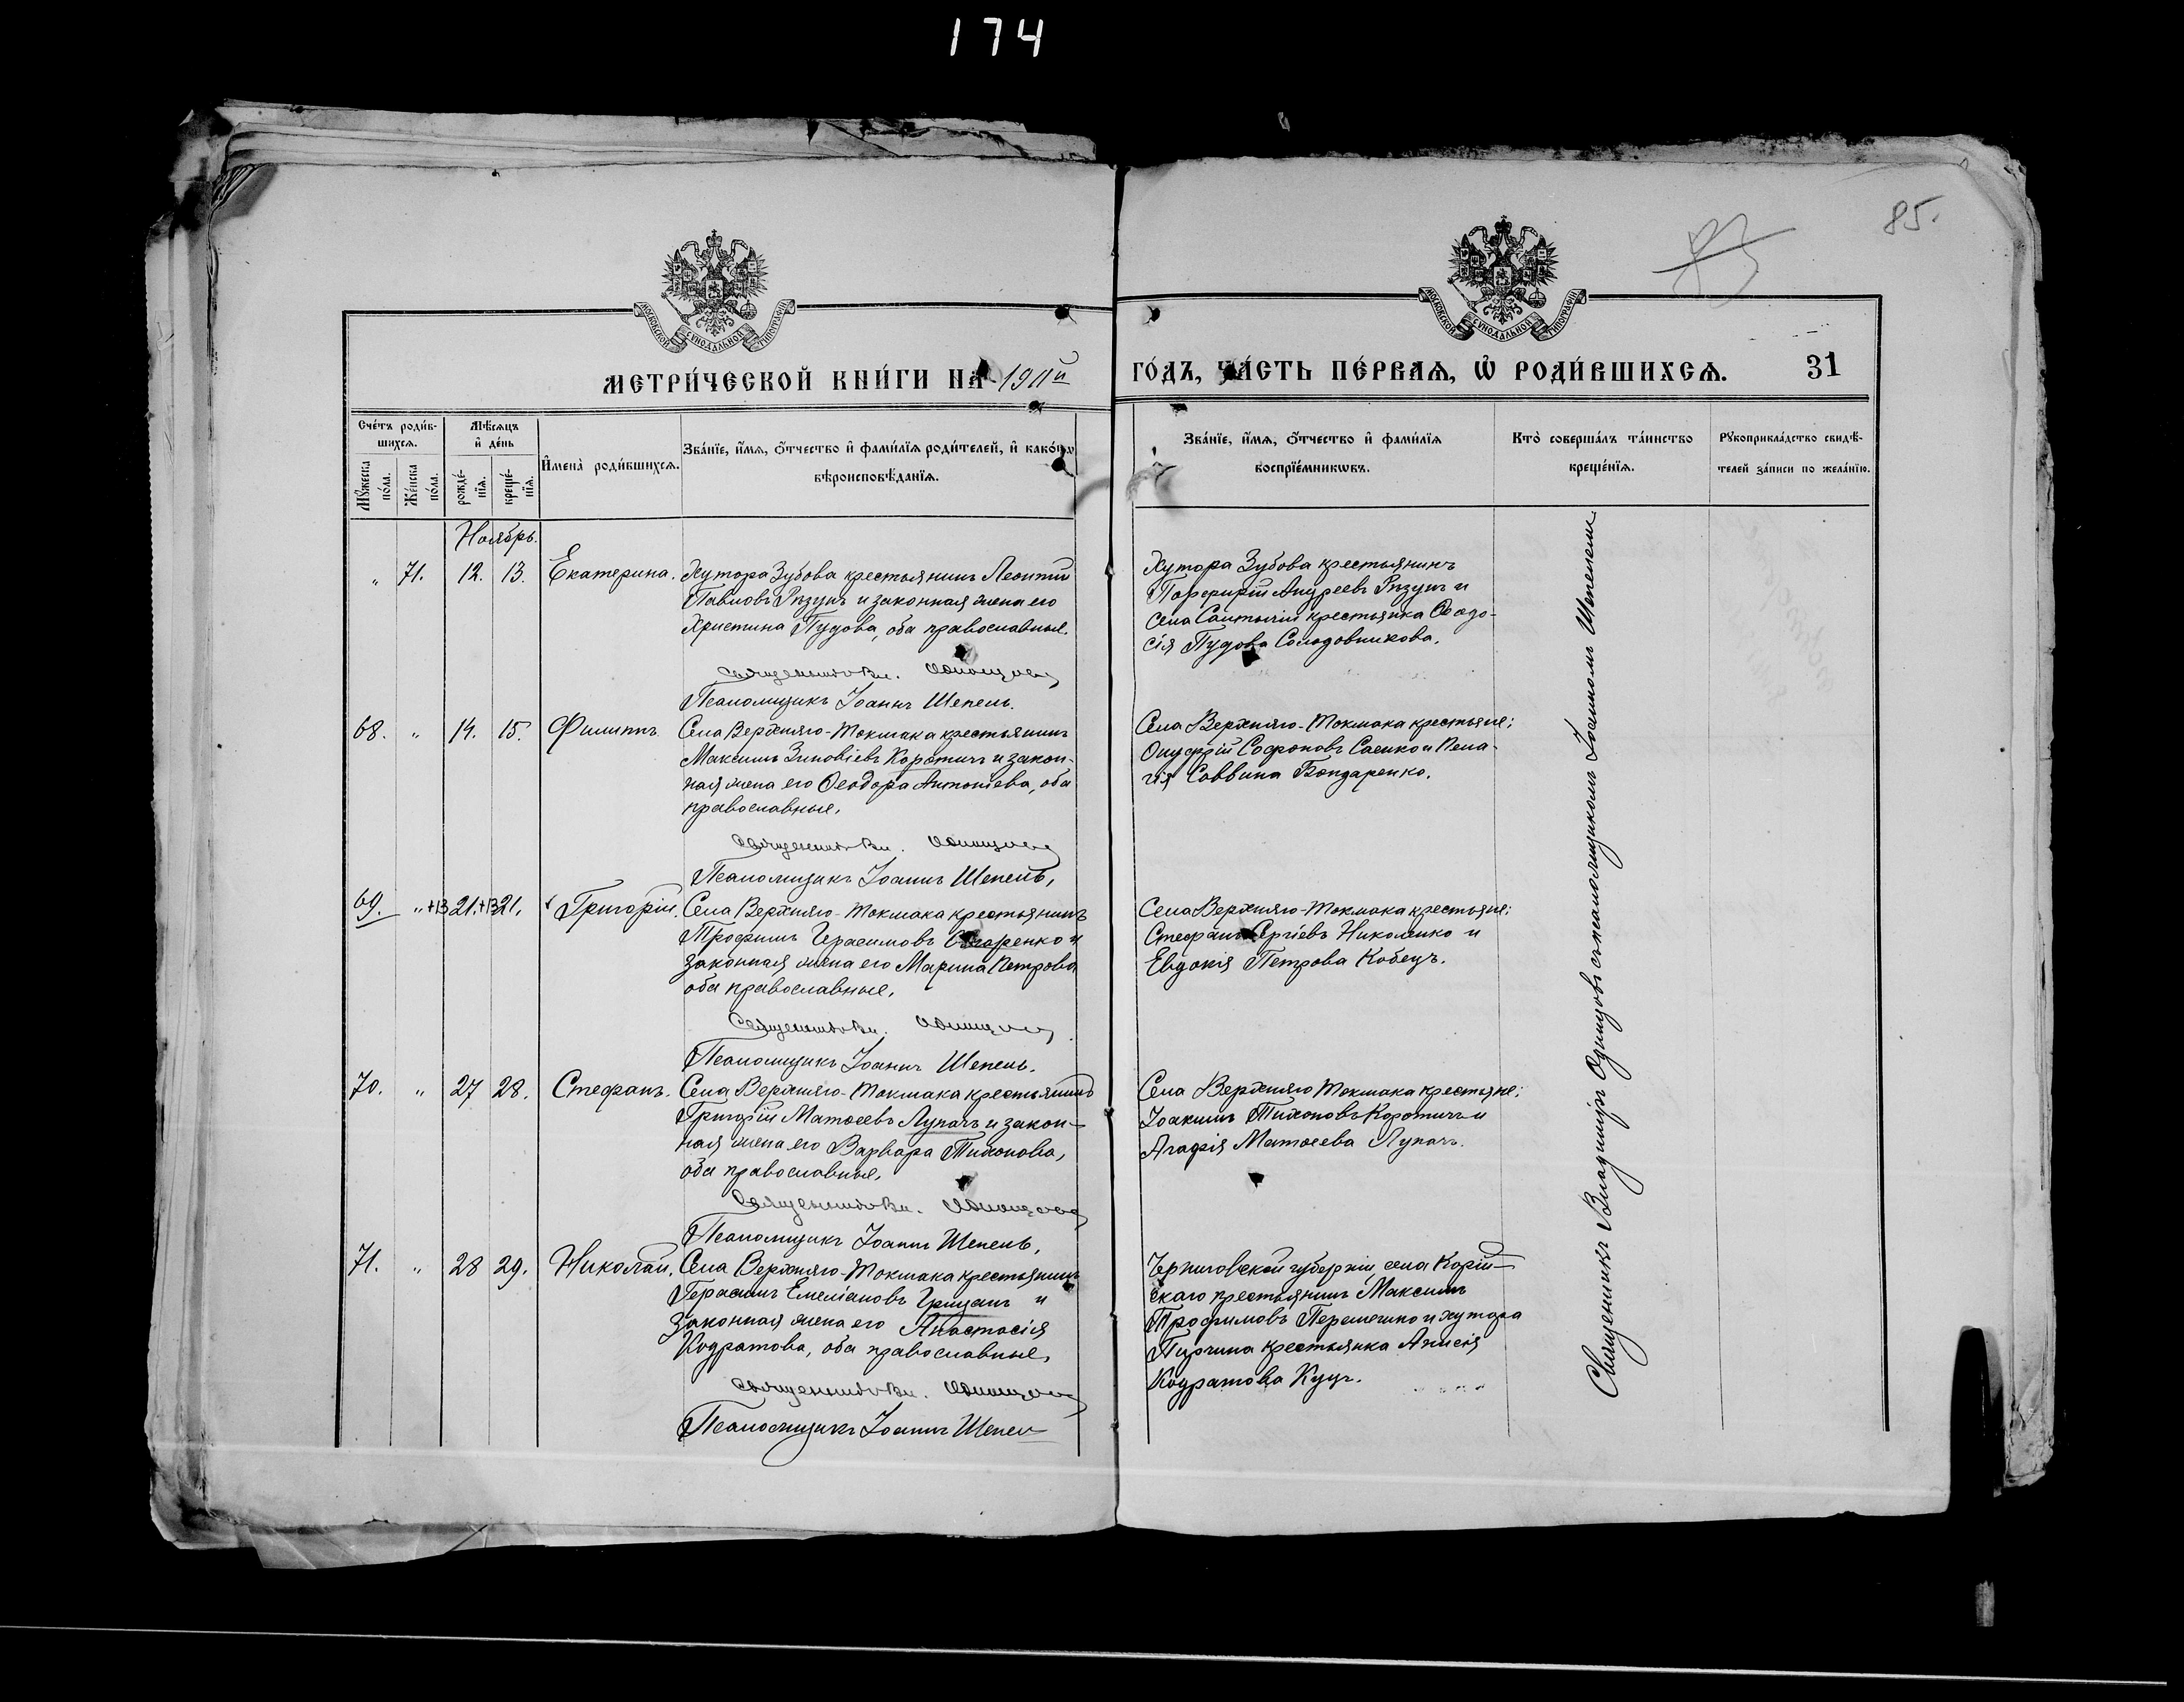 174
85.
МОСКОВСКОЙ СѴНОДАЛЬНОЙ ТИПОГРАФІИ
МОСКОВСКОЙ СѴНОДАЛЬНОЙ ТИПОГРАФІИ
МЕТРИ́ЧЕСКОЙ КНИ́ГИ НА 1911й
ГО́ДЪ, ЧА́СТЬ ПЕ́РВАѦ, Ѡ҆ РОДИ́ВШИХСѦ. 31
Сче́тъ роди́в-
шихсѧ.
Мꙋ́жеска по́ла.
Же́нска по́ла.
Мѣ́сѧцъ
и҆ де́нь
рожде́-
нїѧ.
креще́-
нїѧ.
И҆мена̀ роди́вшихсѧ.
Зва́нїе, и҆́мѧ, ѻ҆́тчество и҆ фами́лїѧ роди́телей, и҆ како́гѡ
вѣроисповѣ́данїѧ.
Зва́нїе, и҆́мѧ, ѻ҆́тчество и҆ фами́лїѧ
воспрїе́мникѡвъ.
Кто̀ соверша́лъ та́инство
креще́нїѧ.
Рꙋкоприкла́дство свидѣ́-
телей за́писи по жела́нїю.
Ноябрь.
„ 71. 12. 13. Екатерина.
Хутора Зубова крестьянинъ Леонтій
Павловъ Рѣзунъ и законная жена его
Христина Пудова, оба православные.
Священникъ Вл. Одинцовъ
Псаломщикъ Іоаннъ Шепель.
Хутора Зубова крестьянинъ
Порфирій Андреевъ Рѣзунъ и
села Салтычіи крестьянка Ѳеодо-
сія Пудова Солодовникова.
68. „ 14. 15. Филиппъ.
Села Верхняго-Токмака крестьянинъ
Максимъ Зиновіевъ Коротичъ и закон-
ная жена его Ѳеодора Антоніева, оба
православные.
Священникъ Вл. Одинцовъ
Псаломщикъ Іоаннъ Шепель.
Села Верхняго-Токмака крестьяне:
Онуфрій Софоновъ Саенко и Пела-
гія Саввина Бондаренко.
69. „ +13 21. +13 21. Григорій.
Села Верхняго-Токмака крестьянинъ
Трофимъ Герасимовъ и
законная жена его Марина Петрова
оба православные.
Священникъ Вл. Одинцовъ
Псаломщикъ Іоаннъ Шепель.
Села Верхняго-Токмака крестьяне:
Стефанъ Сергіевъ Николенко и
Евдокія Петрова Кобецъ.
70. „ 27 28. Стефанъ.
Села Верхняго-Токмака крестьянинъ
Григорій Матѳеевъ Лупачъ и закон-
ная жена его Варвара Тихонова,
оба православные.
Священникъ Вл. Одинцовъ
Псаломщикъ Іоаннъ Шепель.
Села Верхняго Токмака крестьяне:
Іоакимъ Тихоновъ Коротичъ и
Агафія Матѳеева Лупачъ.
71. „ 28 29. Николай.
Села Верхняго-Токмака крестьянинъ
Герасимъ Емеліановъ Грицанъ и
законная жена его Анастасія
Кодратова, оба православные.
Священникъ Вл. Одинцовъ
Псаломщикъ Іоаннъ Шепель
Черниговской губерніи, села Корій-
скаго крестьянинъ Максимъ
Трофимовъ и хутора
крестьянка Анисія
Кодратова Куцъ.
Священникъ Владиміръ Одинцовъ съ псаломщикомъ Іоанномъ Шепелемъ.